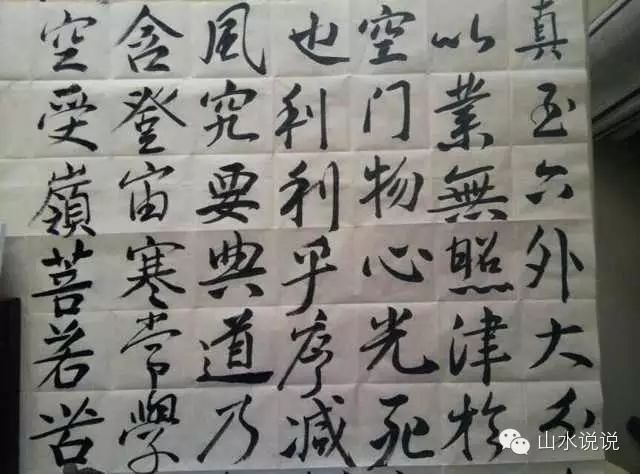 真至六外大
以業無照津於
空门物心光死
也利利乎减
風究要典道乃
含登宙寒常學
空受嶺菩若苦
山水说说